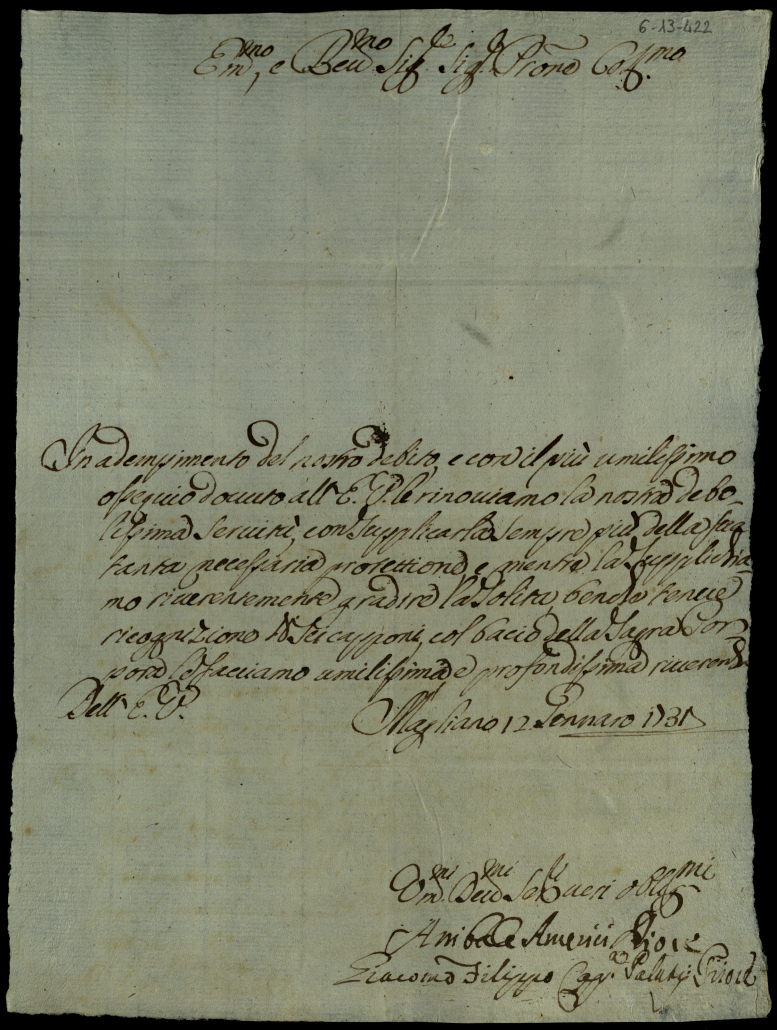 6-13-422
Em.mo, e Rev.mo Sig.re Sig.re Prone Col.mo
In adempimento del nostro debito, e con il più umilissimo
ossequio dovuto all' E. V. le rinoviamo la nostra debo-
lissima servitù, con supplicarla sempre più della
tanta necessaria protettione, e mentre la supplichia-
mo riverentemente gradire la solita, benche tenue
ricognizione di sei capponi, col bacio della Sagra Por-
pora le facciamo umilissima, e profondissima riverenza.
Dell' E. V.
Magliano 12 Gennaro 1731
Um.mi Dev.mi Ser.ri veri obl.mi
Anibale Americi Priore
Giacomo Filippo Priore